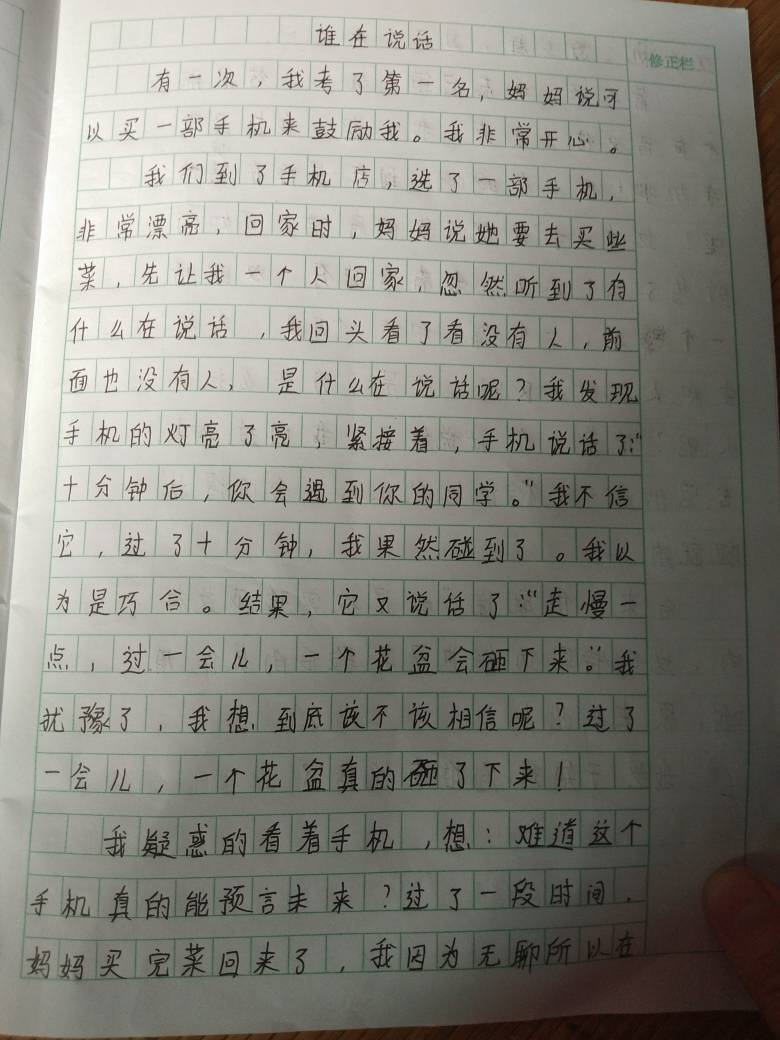 谁在说话
修正栏
有一次，我考了第一名，妈妈说可
以买一部手机来鼓励我。我非常开心。
我们到了手机店，选了一部手机，
非常漂亮，回家时，妈妈说她要去买些
菜，先让我一个人回家，忽然听到了有
什么在说话，我回头看了看没有人，前
面也没有人，是什么在说话呢？我发现
手机的灯亮了亮，紧接着，手机说话了：“
十分钟后，你会遇到你的同学。”我不信
它，过了十分钟，我果然碰到了。我以
为是巧合。结果，它又说话了：“走慢一
点，过一会儿，一个花盆会砸下来。”我
犹豫了，我想，到底该不该相信呢？过了
一会儿，一个花盆真的砸了下来！
我疑惑的看着手机，想：难道这个
手机真的能预言未来？过了一段时间，
妈妈买完菜回来了，我因为无聊所以在